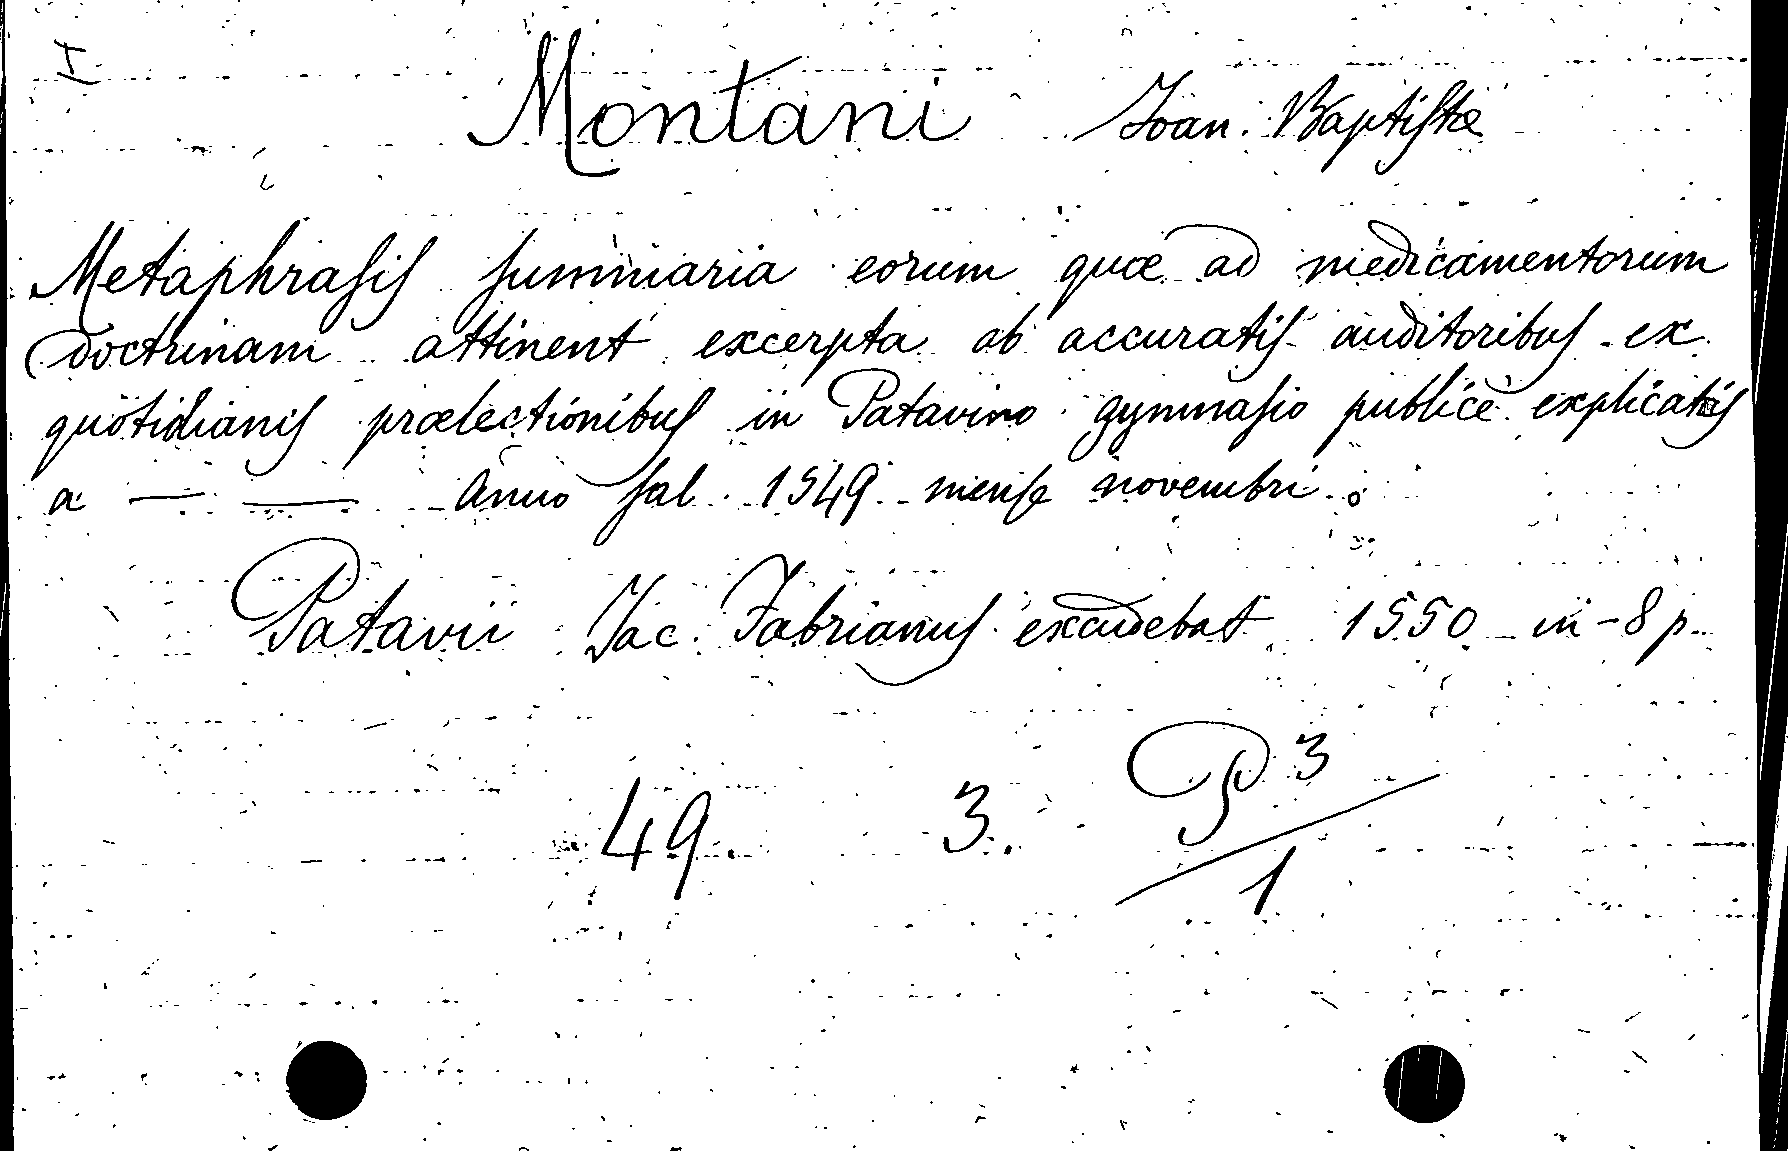 I
Montani Joan. Baptistæ
Metaphrasis summaria eorum quæ ad medicamentorum
doctrinam attinent excerpta ab accuratis auditoribus ex
quotidianis prælectionibus in Patavino gymnasio publicè explicatis
a — — Anno sal. 1549 mense novembri.
Patavii Jac. Fabrianus excudebat 1550 in-8 p.
49. 3. P3/1